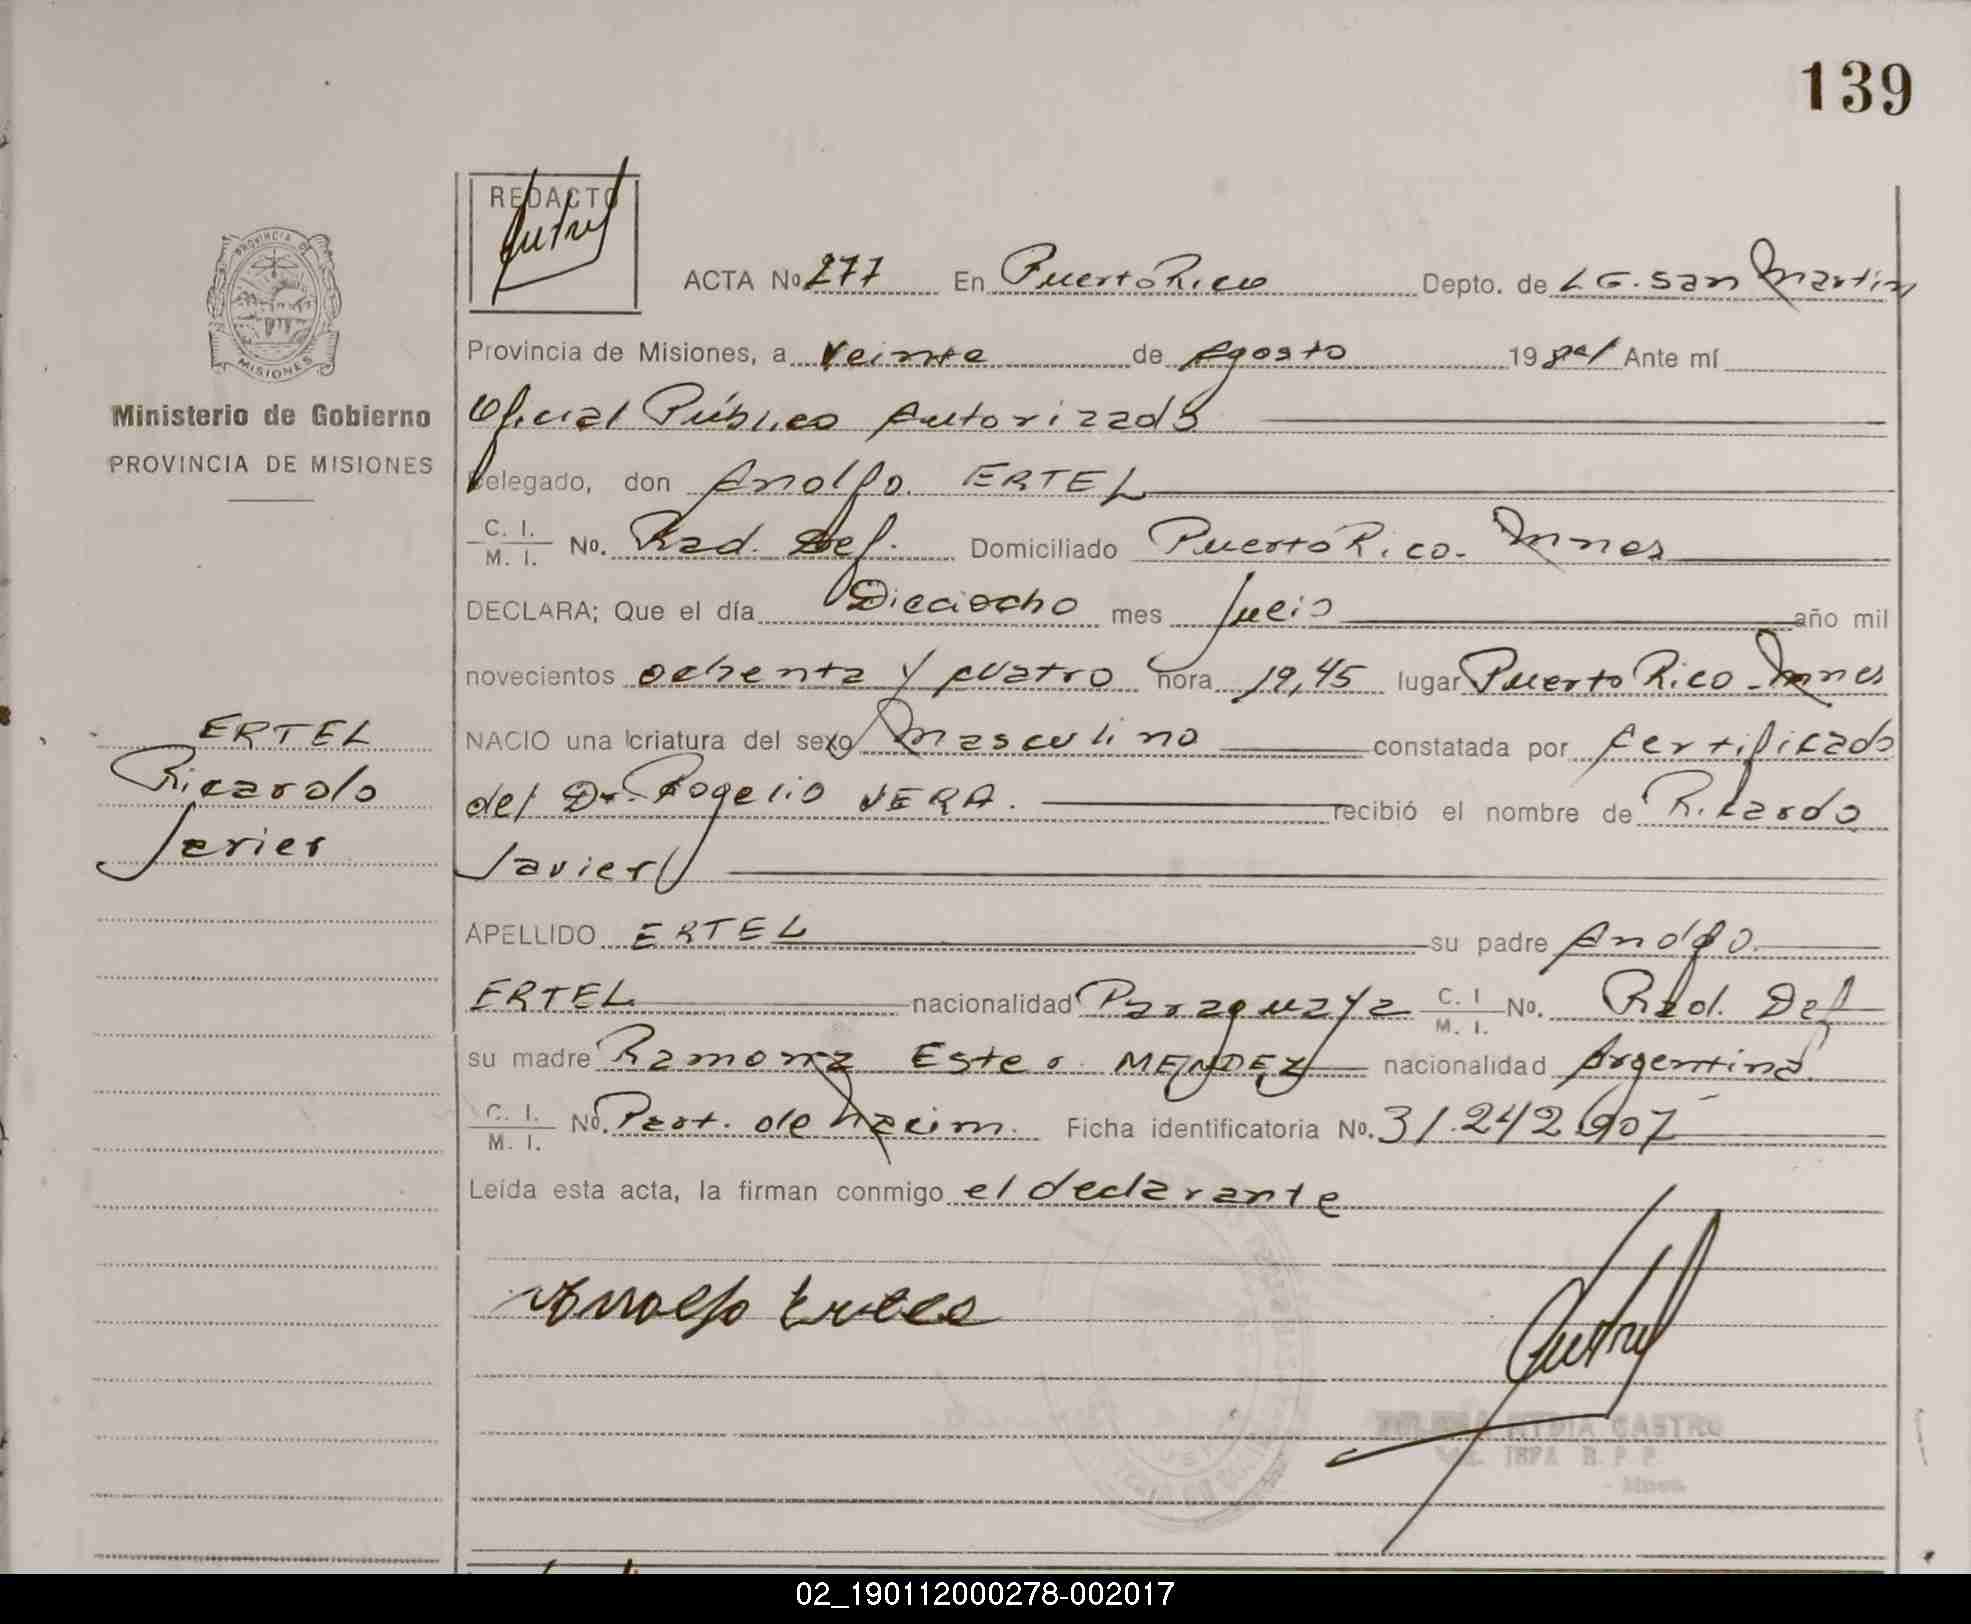 139
REDACTO
PROVINCIA DE
MISIONES
ACTA No 277 En Puerto Rico Depto. de L G. San Martín
Provincia de Misiones, a Veinte de Agosto 1984 Ante mí
Ministerio de Gobierno
PROVINCIA DE MISIONES
Oficial Público Autorizado
Delegado, don Anolfo ERTEL
C. I. M. I. No. Rad. Def. Domiciliado Puerto Rico - Mnes
DECLARA; Que el día Dieciocho mes Julio año mil
novecientos ochenta y cuatro hora 19,45 lugar Puerto Rico - Mnes
NACIO una criatura del sexo Masculino constatada por Certificado
del Dr. Rogelio VERA. recibió el nombre de Ricardo
Javier
ERTEL
Ricardo
Javier
APELLIDO ERTEL su padre Anolfo
ERTEL nacionalidad Paraguaya C. I. M. I. No. Rad. Def
su madre Ramona Ester MENDEZ nacionalidad Argentina
C. I. M. I. No. Part. de Nacim. Ficha identificatoria No. 31.242.907
Leída esta acta, la firman conmigo el declarante
Anolfo Ertel
CASTRO
02_190112000278-002017